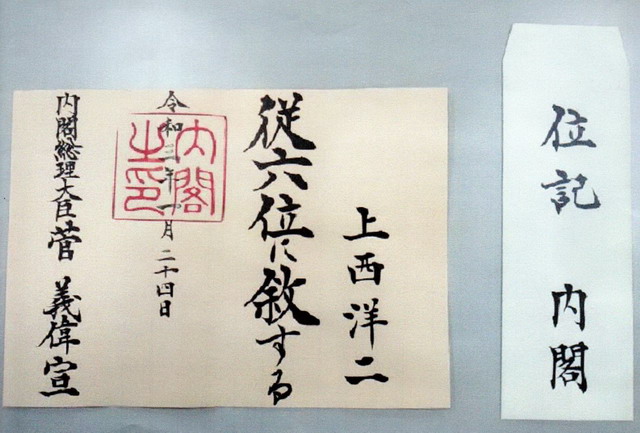 上西洋二
従六位に叙する
令和三年一月二十四日
内閣総理大臣菅義偉宣
内閣之印
位記 内閣